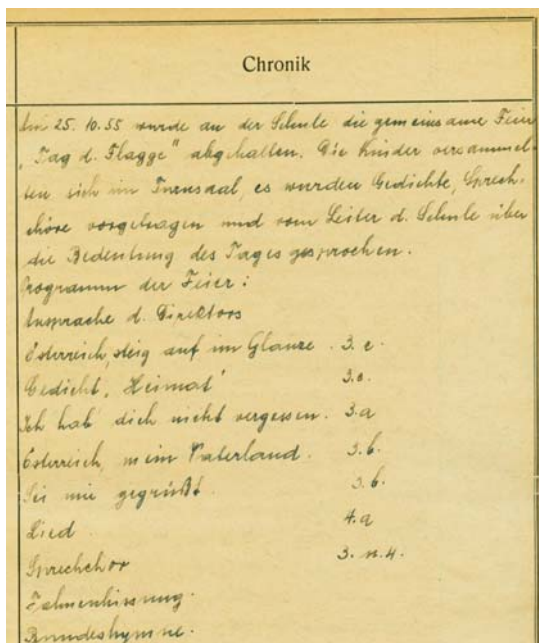 Chronik
Am 25. 10. 55 wurde an der Schule die gemeinsame Feier
„Tag d. Flagge" abgehalten. Die Kinder versammel-
ten sich im Turnsaal, es wurden Gedichte, Sprech-
chöre vorgetragen und vom Leiter d. Schule über
die Bedeutung des Tages gesprochen.
Programm der Feier:
Ansprache d. Direktors
Österreich, steig auf im Glanze. 3. c.
Gedicht, „Heimat" 3.
Ich hab' dich nicht vergessen. 3. a
Österreich, mein Vaterland. 3. b.
Sei mir gegrüßt. 3. b.
Lied 4. a
Sprechchor 3. u. 4.
Fahnenhissung.
Bundeshymne.